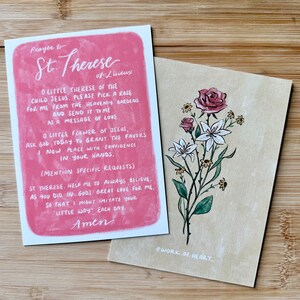 Prayer to
St. Therese
of Lisieux
O LITTLE THERESE OF THE
CHILD JESUS, PLEASE PICK A ROSE
FOR ME FROM THE HEAVENLY GARDENS
AND SEND IT TO ME
AS A MESSAGE OF LOVE.
O LITTLE FLOWER OF JESUS,
ASK GOD TODAY TO GRANT THE FAVORS
I NOW PLACE WITH CONFIDENCE
IN YOUR HANDS.
(MENTION SPECIFIC REQUESTS)
ST. THERESE, HELP ME TO ALWAYS BELIEVE,
AS YOU DID, IN GOD'S GREAT LOVE FOR ME,
SO THAT I MIGHT IMITATE YOUR
"LITTLE WAY" EACH DAY.
Amen